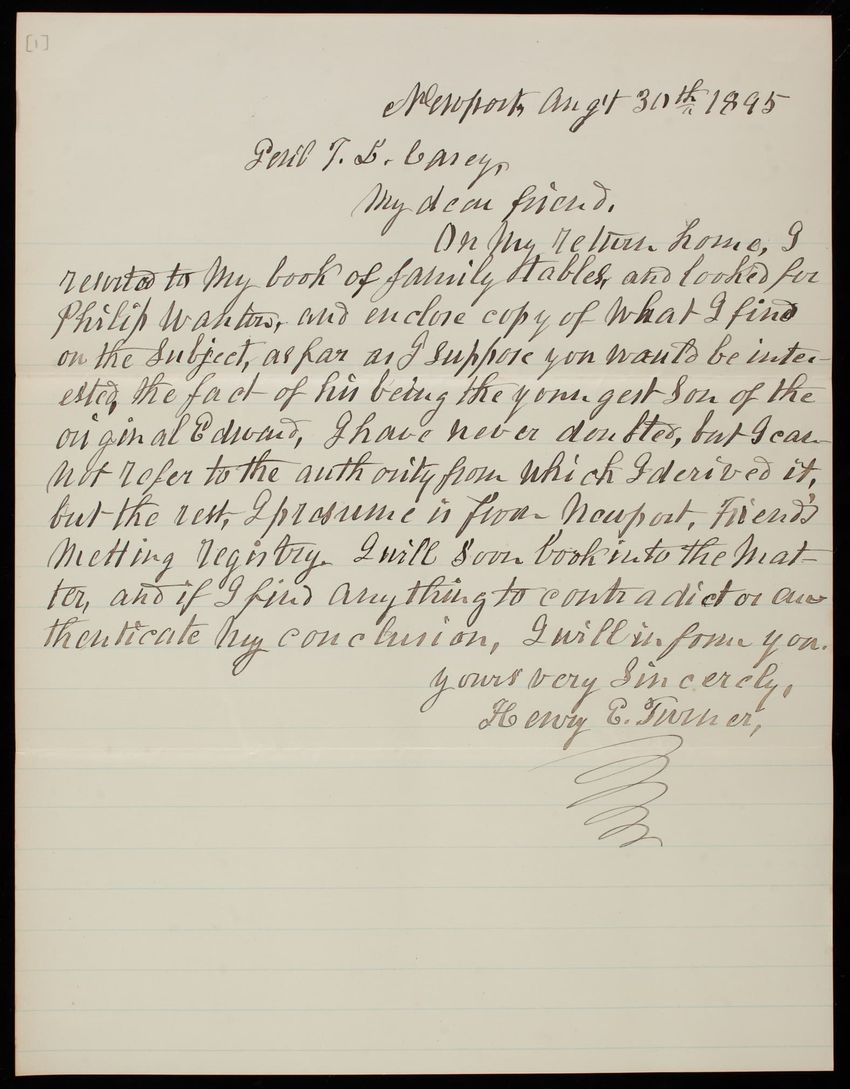 [1]
Newport, Aug't 30th 1895
Genl T. L. Casey,
My dear friend.
On my return home, I
resorted to my book of family tables, and looked for
Philip Wanton, and enclose copy of what I find
on the subject, as far as I suppose you would be inter-
ested, the fact of his being the youngest son of the
original Edward, I have never doubted, but I can
not refer to the authority from which I derived it,
but the rest, I presume is from Newport, Friend's
Metting registry. I will soon look into the mat-
ter, and if I find anything to contradict or au-
thenticate my conclusion, I will inform you.
yours very sincerely,
Henry E. Turner,